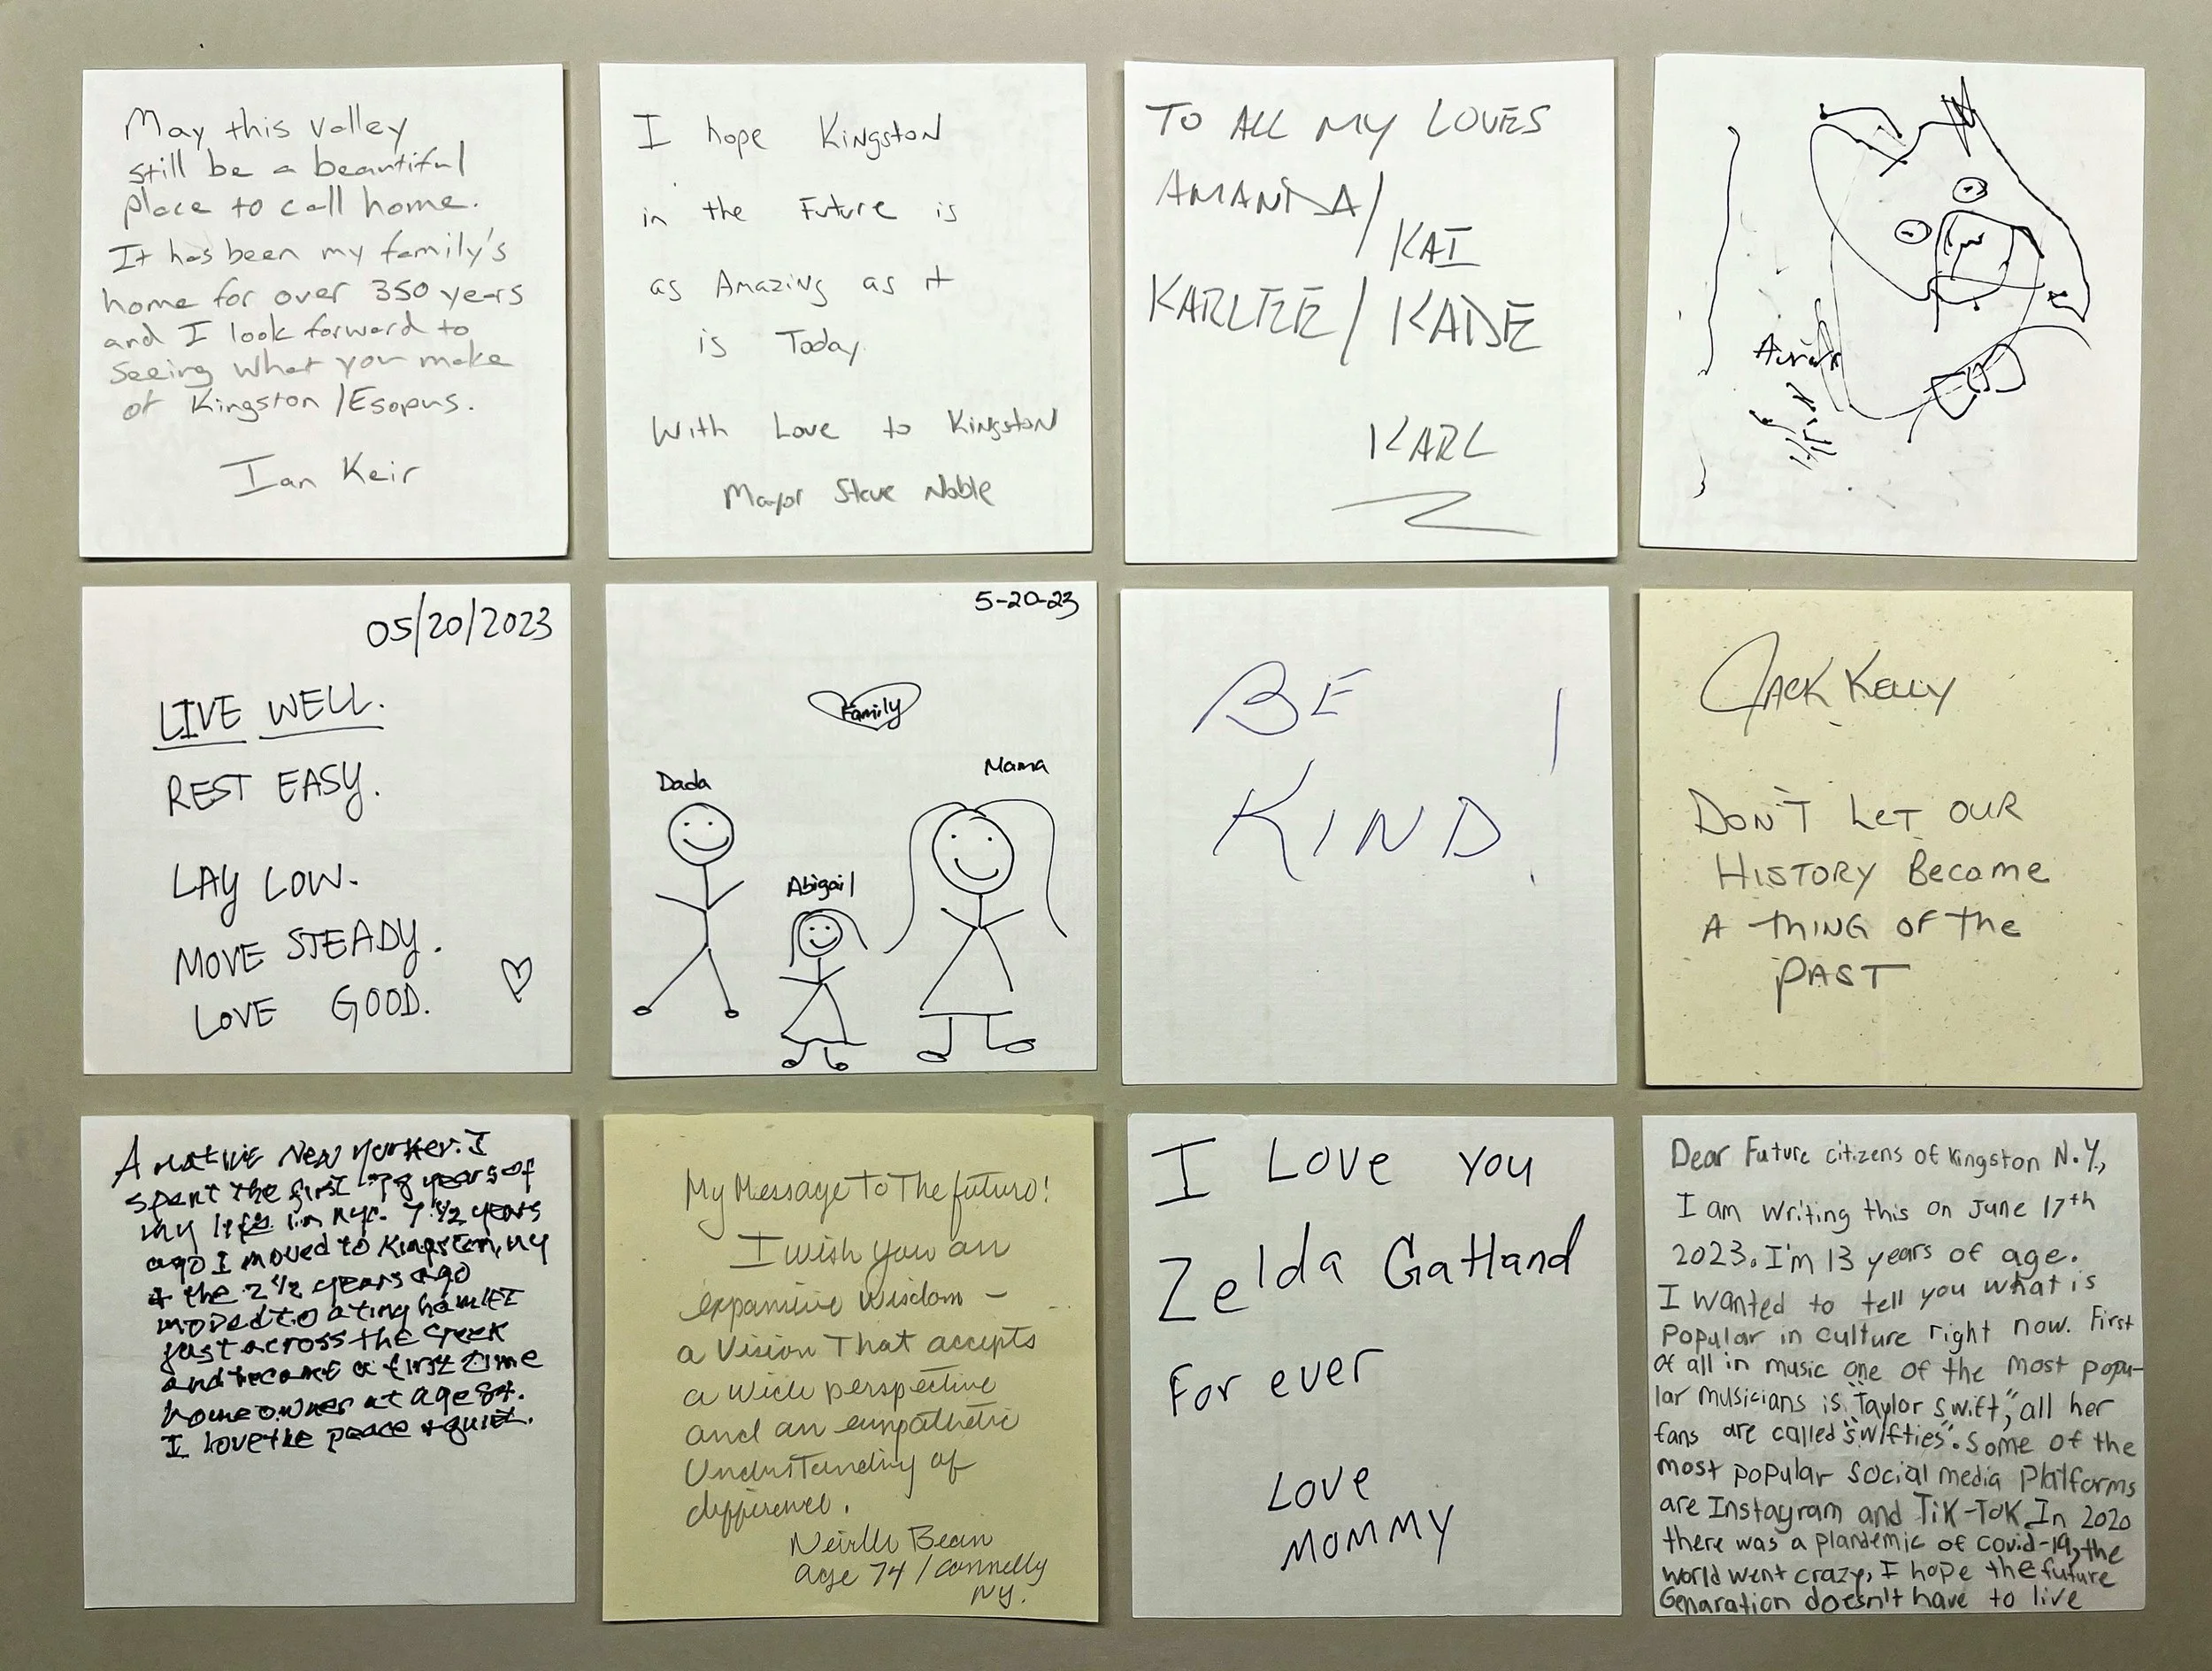 May this valley
still be a beautiful
place to call home.
It has been my family's
home for over 350 years
and I look forward to
seeing what you make
of Kingston /Esopus.
Ian Keir
I hope Kingston
in the Future is
as Amazing as it
is Today.
With Love to Kingston
Mayor Steve Noble
TO ALL MY LOVES
AMANDA/
KAI
KARLIEE/ KADE
KARL
05/20/2023
LIVE WELL.
REST EASY.
LAY LOW.
MOVE STEADY.
LOVE GOOD.
5-20-23
Family
Dada
Mama
Abigail
BE
KIND!
JACK KELLY
DON'T LET OUR
HISTORY Become
A THING OF The
PAST
A native New Yorker. I
spent the first years of
my life in nyc. 7 1/2 years
ago I moved to Kingston, ny
+ the 2 1/2 years ago
moved to a tiny hamlet
just across the creek
and became a first time
homeowner at age 84.
I love the peace + quiet.
My Message To The future!
I wish you an
expansive wisdom –
a vision That accepts
a wide perspective
and an empathetic
Understanding of
difference.
Bean
age 74 / connelly
NY.
I Love you
Zelda Gatland
For ever
Love
Mommy
Dear Future citizens of Kingston N.Y.,
I am writing this on June 17th
2023. I'm 13 years of age.
I wanted to tell you what is
Popular in culture right now. First
of all in music one of the most popu-
lar musicians is "Taylor Swift," all her
fans are called "Swifties". Some of the
most popular social media Platforms
are Instagram and TiK-ToK. In 2020
there was a plandemic of covid-19, the
world went crazy, I hope the future
Genaration doesn't have to live